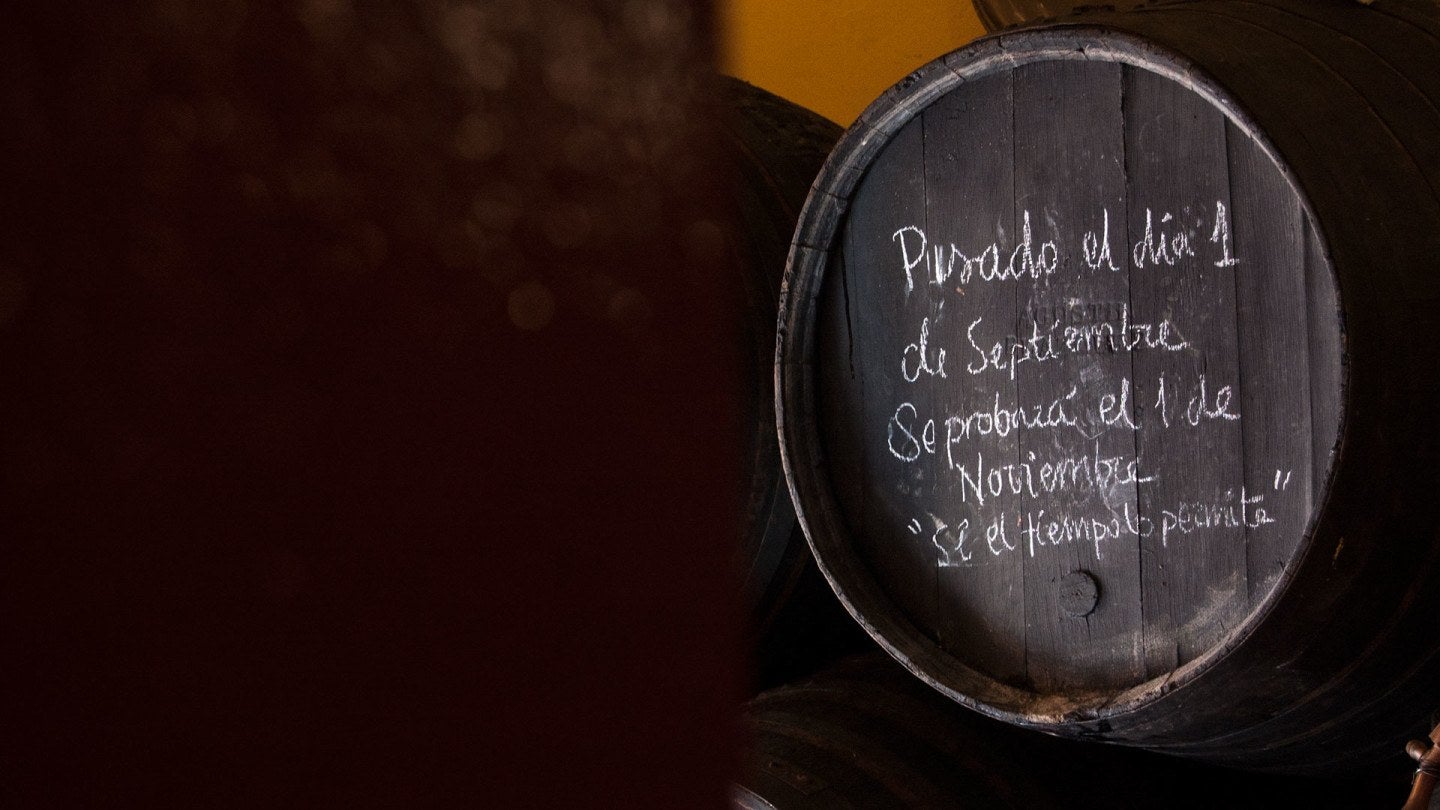 Pusado el día 1
de Septiembre
Se probará el 1 de
Noviembre
"si el tiempo lo permite"